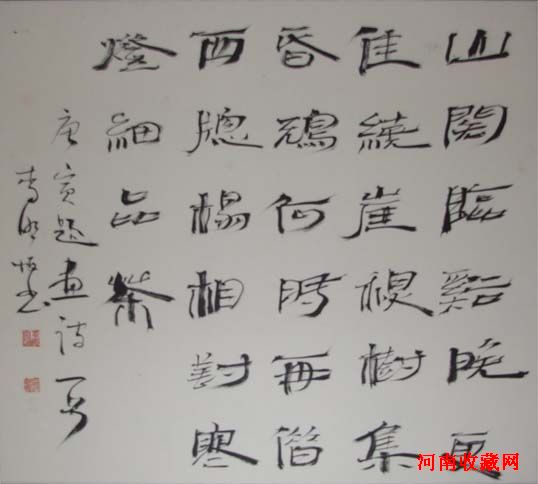 山閣臨谿晚更
佳繞崖樹集
昏鴉何時再借
西牕榻相對寒
燈細品茶
唐寅題畫詩一首
李
河南收藏网